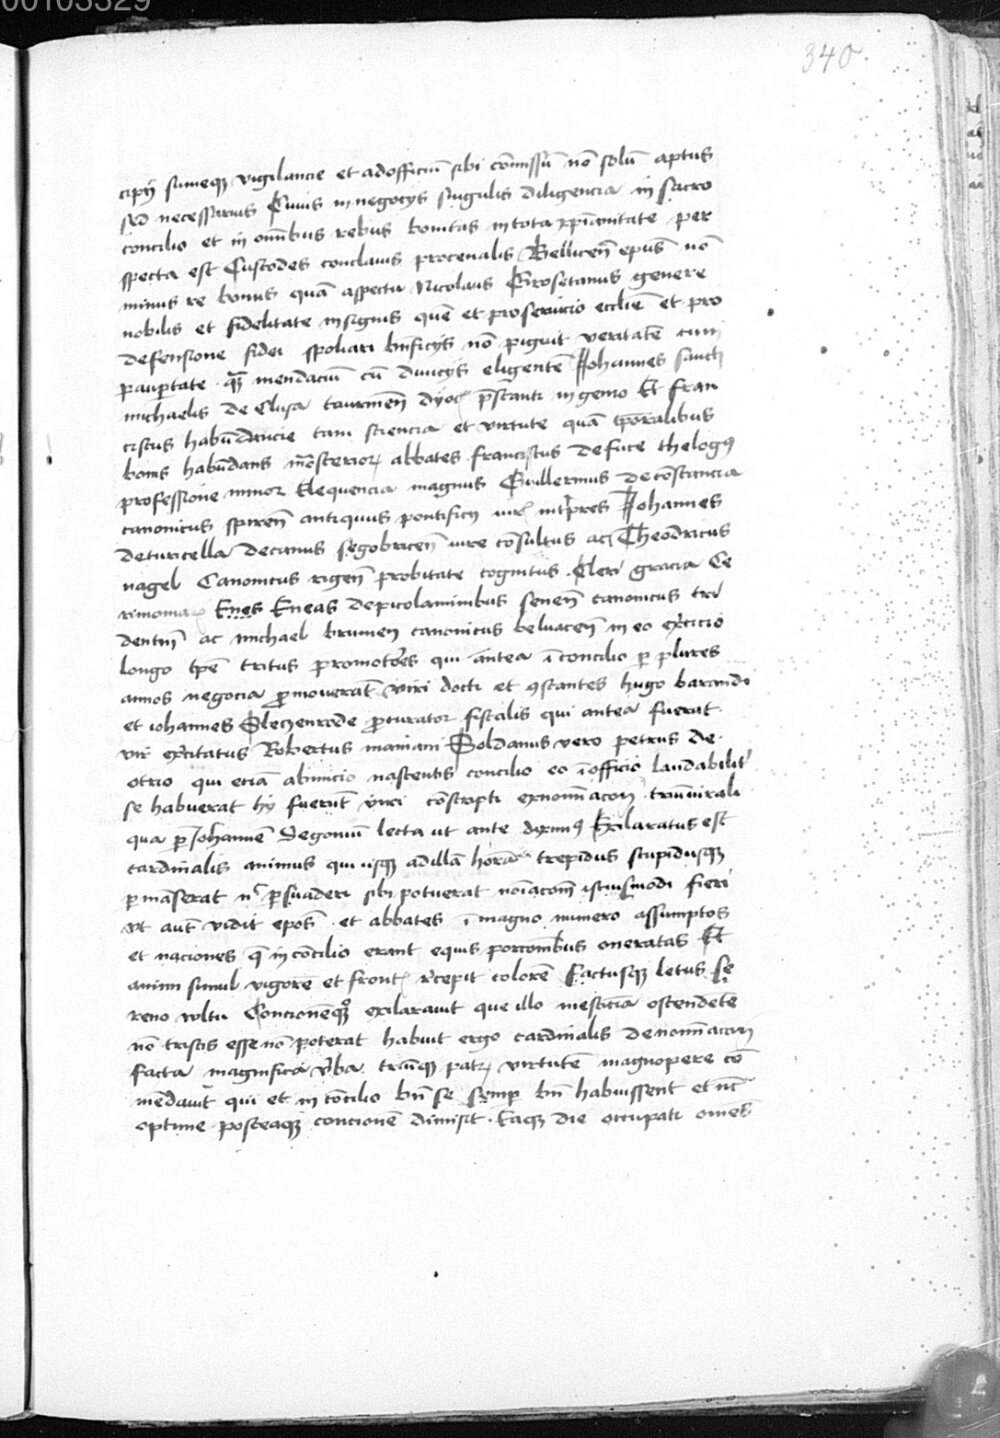 00103329
340
cipij sumeqꝫ vigilancie et ad officiū sibi cōmissū nō solū aptus
sed necessarius Cuius in negocijs singulis diligencia in sacro
concilio et in omībus rebus bonitas in tota xp̄ianitate per
specta est Custodes conclauis procenalis Bellicen̄ ep̄us nō
minus re bonus quā aspectu Nicolaus Grosetanus genere
nobilis et fidelitate insignis quē et pro seruicio ecclīe et pro
defensione fidei spoliari bn̄ficijs nō piguit veritatē cum
paupertate qꝫ mendaciū cū diuicijs eligentē Johannes sancti
michaelis de Clusa taurinen̄ dyoc̄ p̄stanti ingenio Et fran
ciscus habūdancie tam sciencia et virtute quā tp̄oralibus
bonis habūdans mōsteriorꝝ abbates franciscus de fuce theologꝰ
professione minor Eloquencia magnus Guillermus de cōstancia
canonicus spiren̄ antiquus pontificij iur̄ intp̄res Johannes
de turicella decanus segobricen̄ iure cōsultus ac Theodricus
nagel Canonicus rigen̄ probitate cognitus . Cleri gracia Ce
rimoniarꝝ Enes Eneas de picolaminibus senen̄ canonicus tri
dentin̄ ac michael brunen canonicus beluacen̄ in eo ex̄citio
longo tp̄e tritus promotōes qui antea ī concilio p̱ plures
annos negocia p̱mouerāt viri docti et ꝯstantes hugo barardi
et iohannes Slechenrode p̱curator fiscalis qui antea fuerat
vir ex̄citatus Robertus maniani Soldanus vero petrus de
otrio qui eciā ab inicio nascentis concilio eo ī officio laudabilit̄
se habuerat hij fuerūt viri cōscripti ex nomīacoīe triūuirali
qua p̱ Johannē Segoniū lecta ut ante diximꝰ Exilaratus est
cardinalis animus qui usqꝫ ad illā horā trepidus stupidusqꝫ
p̱māserat nc̄ p̱suaderi sibi potuerat noīacoīem istiusmodi fieri
vt aut̄ vidit ep̄os . et abbates ī magno numero assumptos
et naciones q̄ in cōcilio erant equis porcoīībus oneratas Et
animi simul vigorē et front̄ recepit colorē Factusqꝫ letus se
reno vultu Concionēqꝫ exilarauit que illo mesticia ostendētē
nō tristis esse nō poterat habuit ergo cardinalis de nomīacoīe
facta magnifica v̄ba triūqꝫ patrꝫ virtutē magnopere cō
mēdauit qui et in cōcilio bn̄ se semp̱ bn̄ habuissent et nc̄
optime posteaqꝫ concionē dimisit . Eaqꝫ die occupati omēs